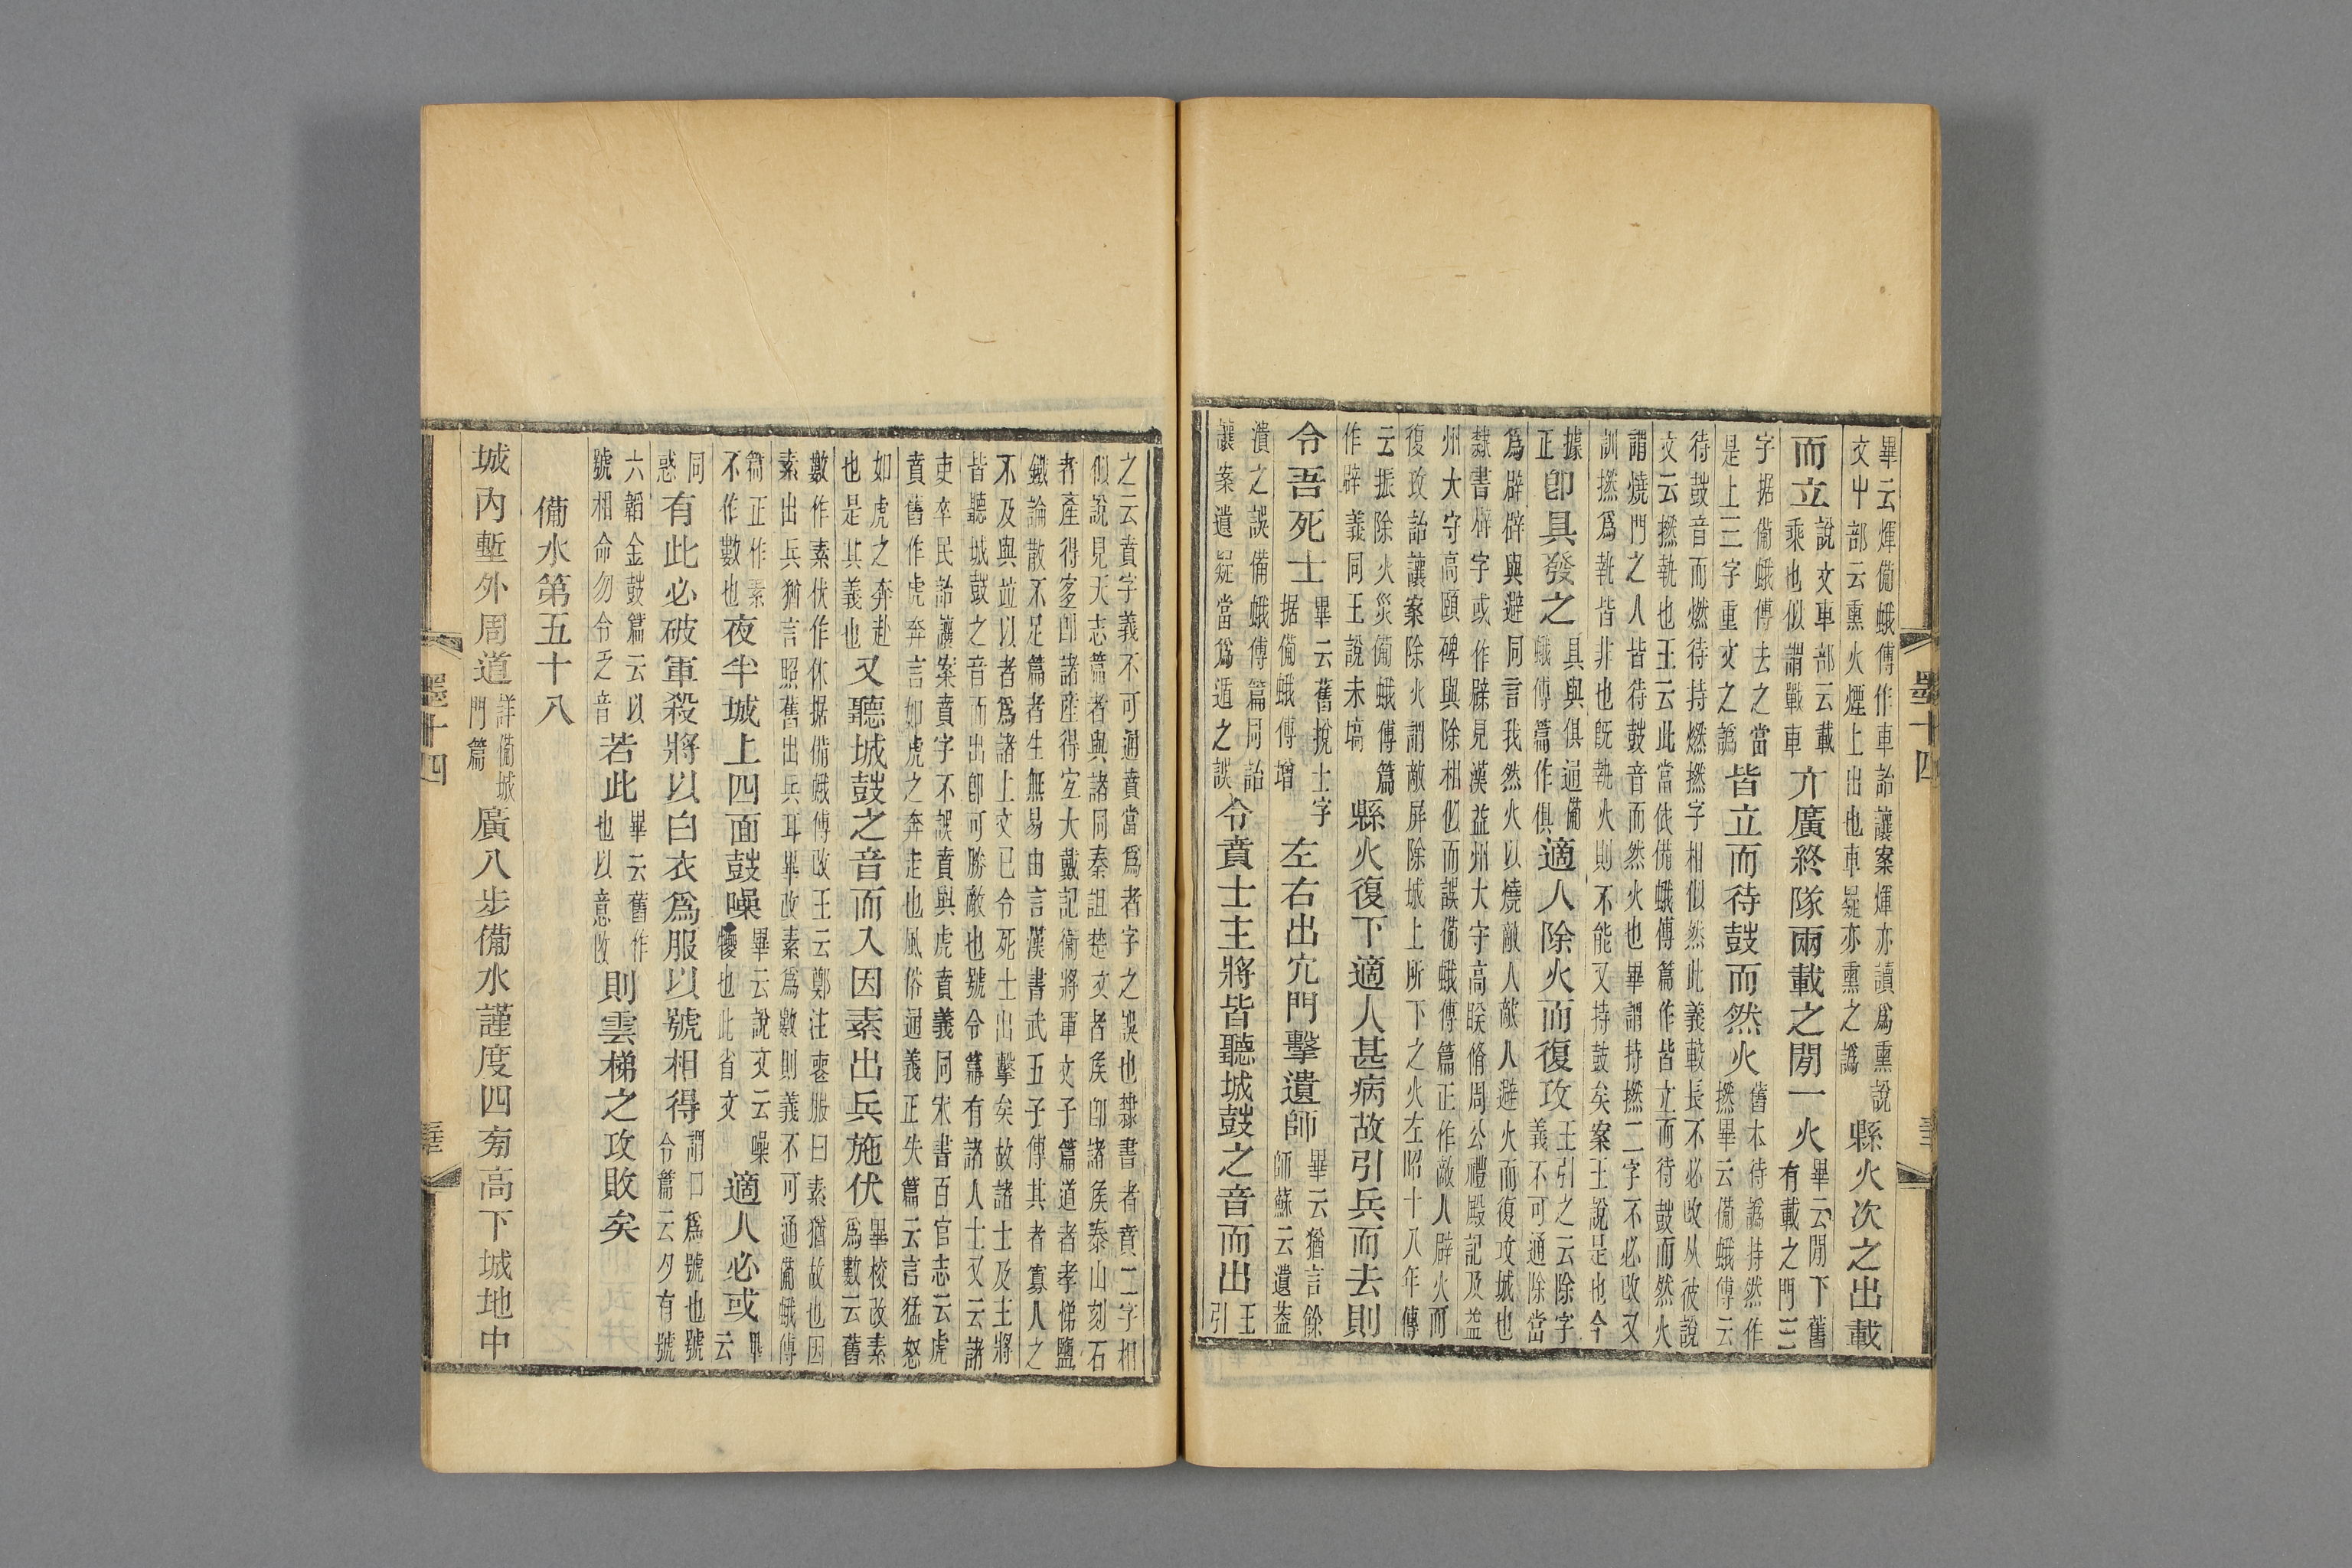 畢云煇備蛾傅作車詒讓案煇亦讀爲熏說
文屮部云熏火煙上出也車疑亦熏之譌
縣火次之出載
而立
說文車部云載
乘也似謂戰車
亓廣終隊兩載之閒一火
畢云閒下舊
有載之門三
字据備蛾傅去之當
是上三字重文之譌
皆立而待鼓而然火
舊本待譌持然作
撚畢云備蛾傅云
待鼓音而燃待持燃撚字相似然此義較長不必改从彼說
文云撚執也王云此當依備蛾傅篇作皆立而待鼓而然火
謂燒門之人皆待鼓音而然火也畢謂持撚二字不必改又
訓撚爲執皆非也旣執火則不能又持鼓矣案王說是也今
據
正
卽具發之
具與俱通備
蛾傅篇作俱
適人除火而復攻
王引之云除字
義不可通除當
爲辟辟與避同言我然火以燒敵人敵人避火而復攻城也
隸書辟字或作䢃見漢益州大守高朕脩周公禮殿記及益
州大守高頤碑與除相似而誤備蛾傅篇正作敵人辟火而
復攻詒讓案除火謂敵屏除城上所下之火左昭十八年傳
云振除火災備蛾傅篇
作辟義同王說未塙
縣火復下適人甚病故引兵而去則
令吾死士
畢云舊挩士字
据備蛾傅增
左右出穴門擊遺師
畢云猶言餘
師蘇云遺蓋
潰之誤備蛾傅篇同詒
讓案遺疑當爲遁之誤
令賁士主將皆聽城鼓之音而出
王
引
墨十四
之云賁字義不可通賁當爲者字之誤也隸書者賁二字相
似說見天志篇者與諸同秦詛楚文者矦卽諸矦泰山刻石
者產得宐卽諸產得宐大戴記衞將軍文子篇道者孝悌鹽
鐵論散不足篇者生無易由言漢書武五子傳其者寡人之
不及與竝以者爲諸上文已令死士出擊矣故諸士及主將
皆聽城鼓之音而出卽可勝敵也號令篇有諸人士又云諸
吏卒民詒讓案賁字不誤賁與虎賁義同宋書百官志云虎
賁舊作虎奔言如虎之奔走也風俗通義正失篇云言猛怒
如虎之奔赴
也是其義也
又聽城鼓之音而入因素出兵施伏
畢校改素
爲數云舊
數作素伏作休据備蛾傅改王云鄭注喪服曰素猶故也因
素出兵猶言照舊出兵耳畢改素爲數則義不可通備蛾傅
篇正作素
不作數也
夜半城上四面鼓噪
畢云說文云噪
擾也此省文
適人必或
畢
云
同
惑
有此必破軍殺將以白衣爲服以號相得
謂口爲號也號
令篇云夕有號
六韜金鼓篇云以
號相命勿令乏音
若此
畢云舊作
也以意改
則雲梯之攻敗矣
備水第五十八
城內塹外周道
詳備城
門篇
廣八步備水謹度四㫄高下城地中
墨十四